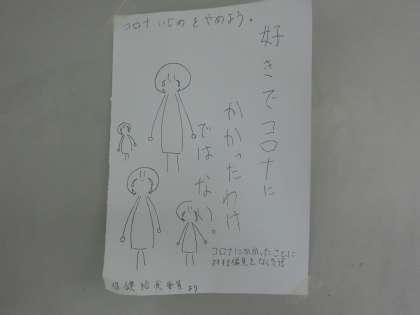 コロナいじめをやめよう。
好きでコロナに
かかったわけ
ではない。
コロナにかかったことに
対する偏見をなくそう
保健給食委員より